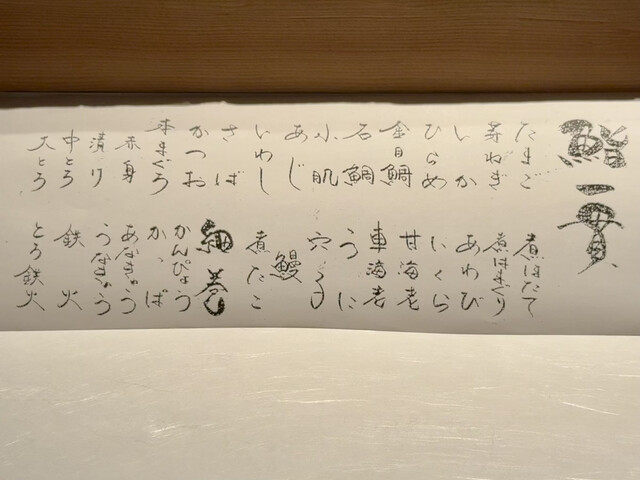 鮨一貫
たまご
芽ねぎ
いか
ひらめ
金目鯛
石鯛
小肌
あじ
いわし
さば
かつお
本まぐろ
赤身
漬り
中とろ
大とろ
煮ほたて
煮はまぐり
あわび
いくら
甘海老
車海老
うに
穴子
鰻
煮だこ
細巻
かんぴょう
かっぱ
あなきゅう
うなきゅう
鉄火
とろ鉄火